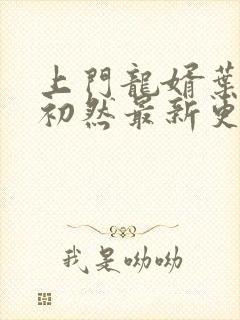 上門龍婿葉
初然最新更
我是呦呦